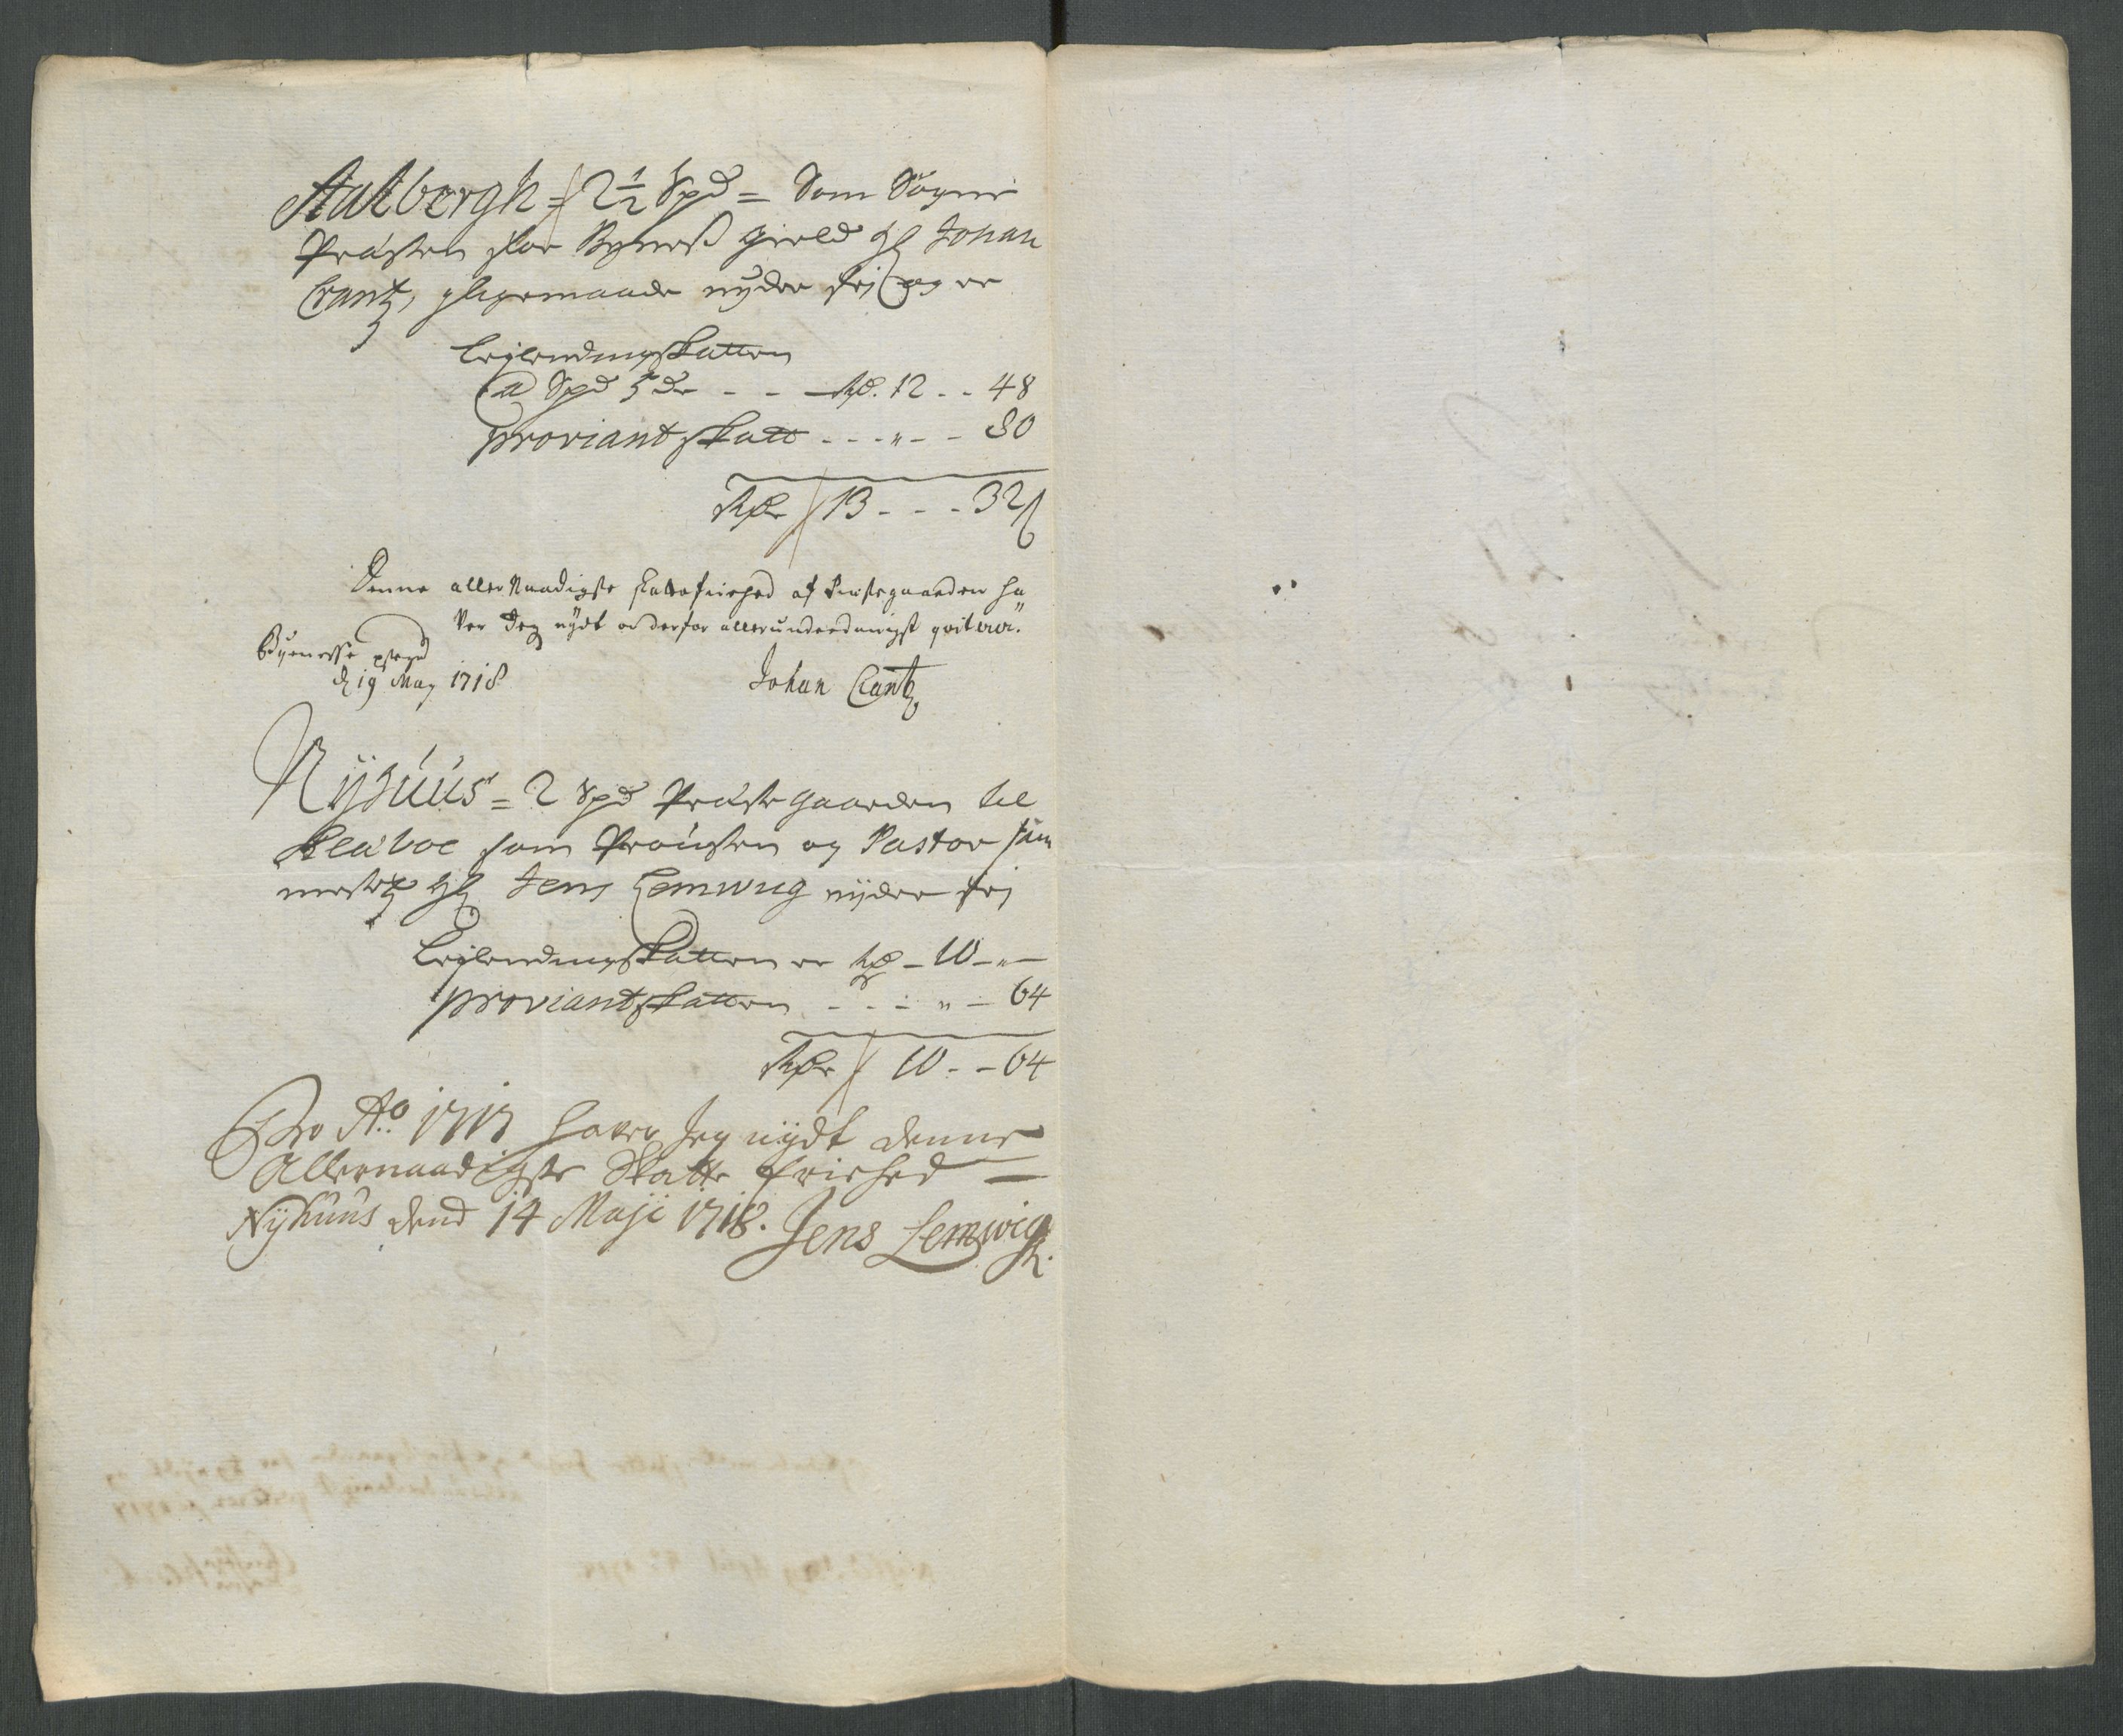 Stalbergh = 2 1/2 Spd = Som Sogne
Præsten for Byness gield Hr Johan
Crantz, ligemaade nyder frj og er
Leylendingskatten
a Spd 5 dr - - - Rd. 12 - - 48
proviant skatt - - - " - - 80
Rdr 13 - - - 32 s
Denne aller Naadigste skattefriehed af Præstegaarden ha„
ver Jeg nydt og derfor allerunderdanigst qviterer.
Byenesse
d 19 May 1718
Johan Crantz
Nyhuus = 2 Spd Præstegaarden til
Kleaboe som Provsten og Pastor sam
mestetz Hr Jens Lemwug nyder frj
Leylendingskatten er Rdr - 10 - " -
proviantskatten - - - " - 64
Rdr 10 - - 64
Pro Ao. 1717 haver Jeg nydt denne
Allernaadigste Skatte friehed -
Nyhuus dend 14 Maji 1718. Jens Lemwigh.